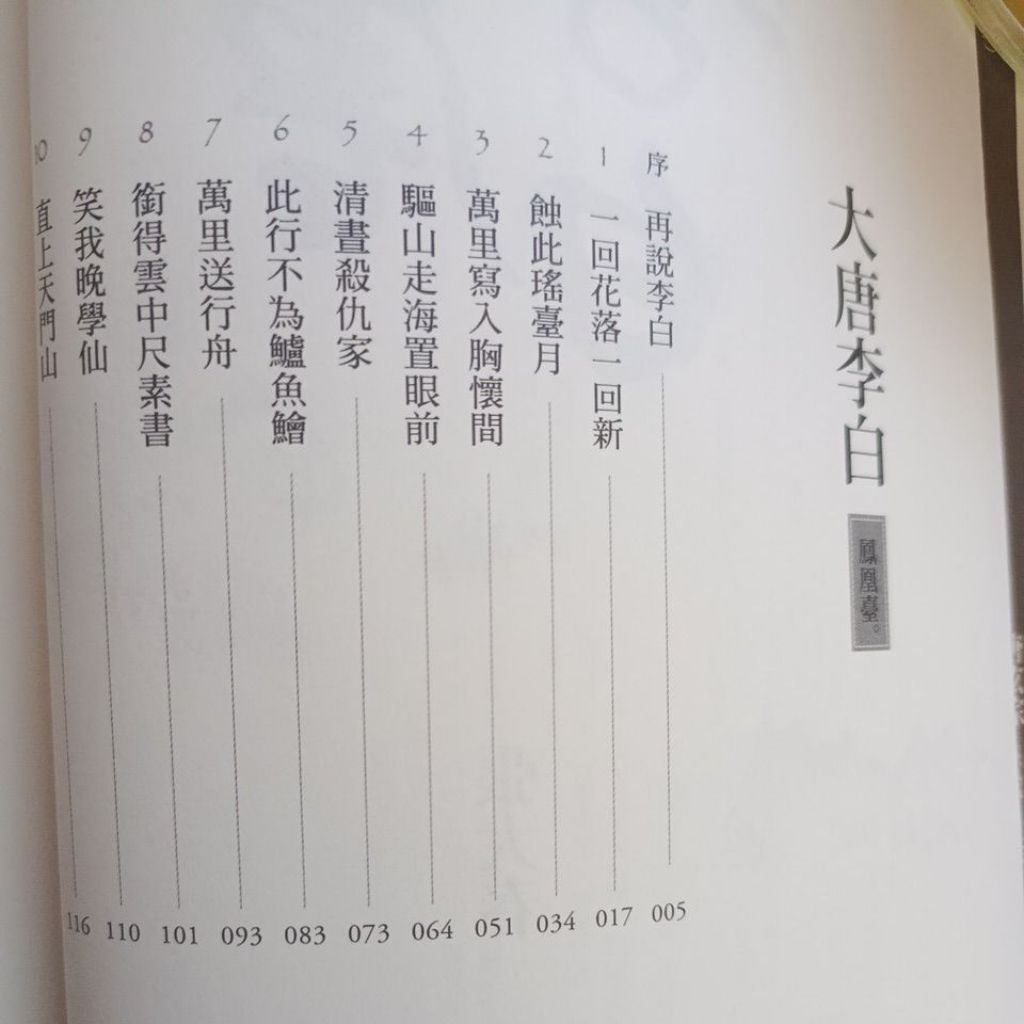 大唐李白
鳳凰臺。
序 再說李白 005
1 一回花落一回新 017
2 蝕此瑤臺月 034
3 萬里寫入胸懷間 051
4 驅山走海置眼前 064
5 清晝殺仇家 073
6 此行不為鱸魚鱠 083
7 萬里送行舟 093
8 銜得雲中尺素書 101
9 笑我晚學仙 110
10 直上天門山 116